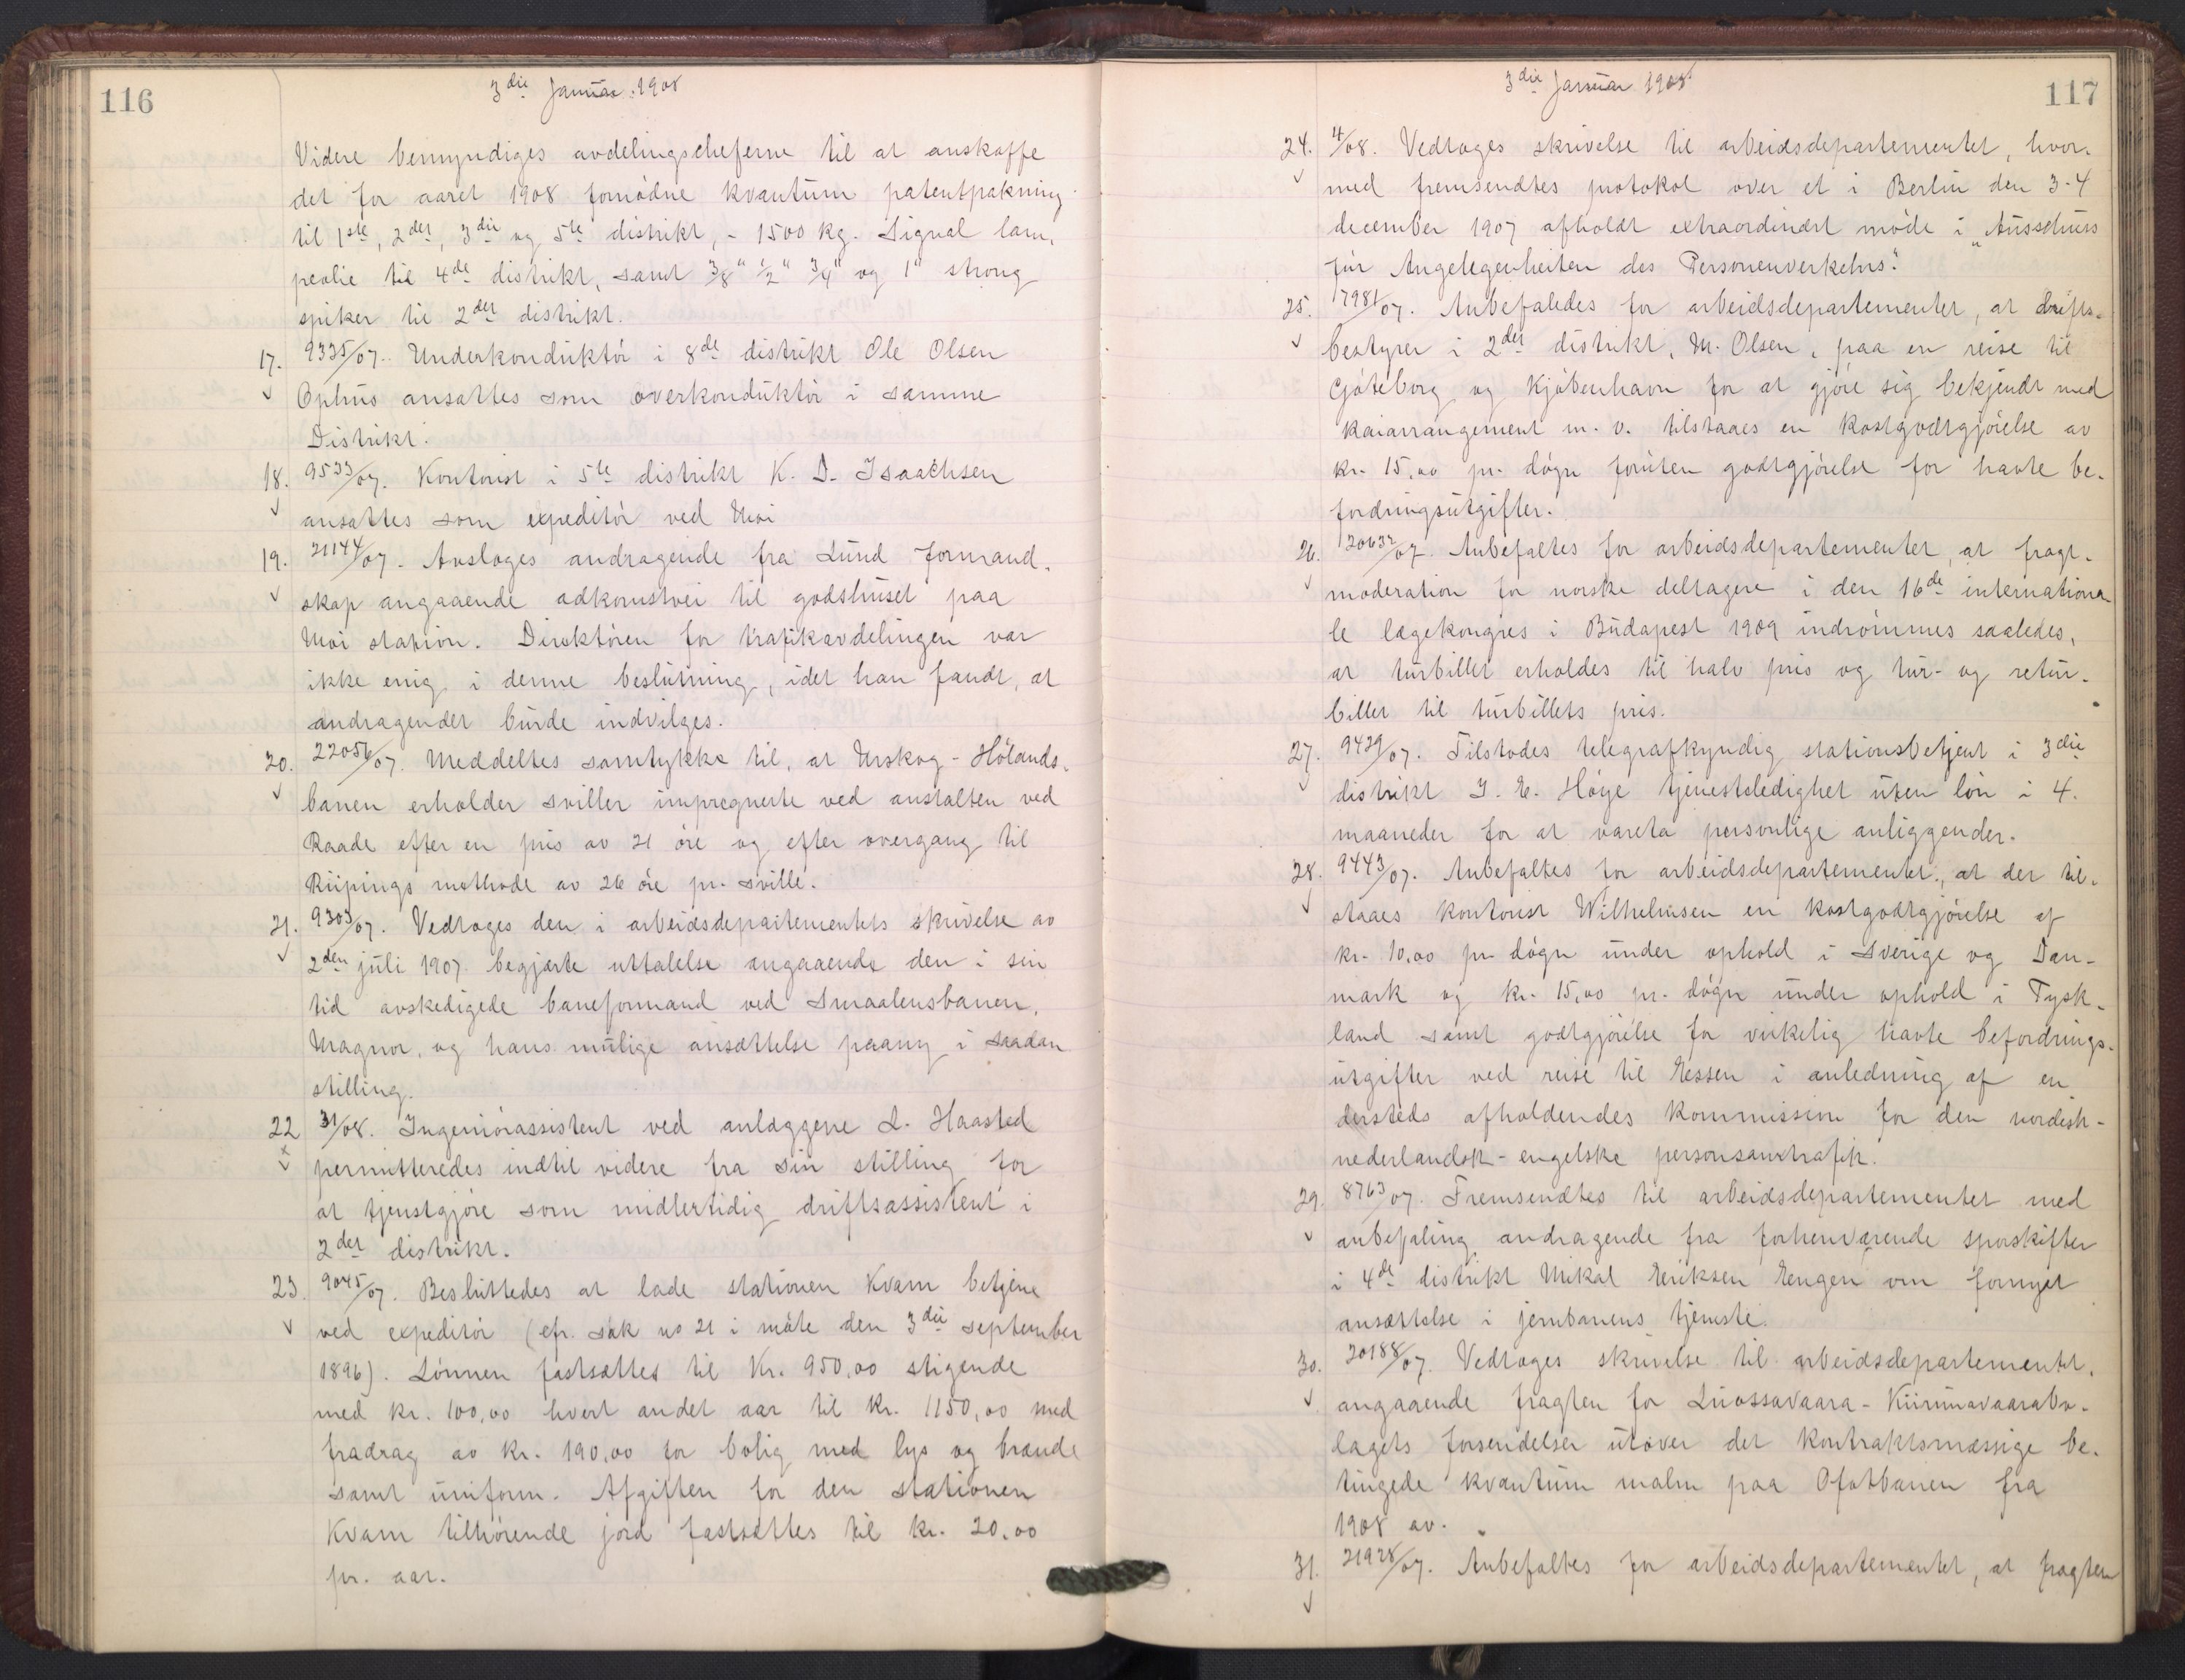 116
3die Januar 1908
Videre bemyndiges avdelingscheferne til at anskaffe
det for aaret 1908 fornødne kvantum patentpakning
til 1ste, 2det, 3die og 5te distrikt, - 1500 kg. Signal lam-
peolie til 4de distrikt, samt 3/8" 1/2" 3/4" og 1" strong
spiker til 2det distrikt.
17. 9335/07. Underkonduktör i 8de distrikt Ole Olsen
Ophus ansattes som overkonduktör i samme
Distrikt.
18. 9533/07. Kontorist i 5te distrikt K. D. Isaachsen
ansattes som expeditör ved Moi
19. 21144/07. Avsloges andragende fra Lund formand-
skap angaaende adkomstvei til godshuset paa
Moi station. Direktören for trafikavdelingen var
ikke enig i denne beslutning, idet han fandt, at
andragendet burde indvilges.
20. 22056/07. Meddeltes samtykke til, at Urskog-Hölands-
banen erholder sviller impregnerte ved anstalten ved
Raade efter en pris av 21 öre og efter overgang til
Rüpings methode av 26 öre pr. sville.
21. 9303/07. Vedtoges den i arbeidsdepartementets skrivelse av
2den juli 1907 begjærte uttalelse angaaende den i sin
tid avskedigede baneformand ved Smaalensbanen,
Magnor, og hans mulige ansættelse paany i saadan
stilling.
22 31/08. Ingeniörassistent ved anlæggene L. Haasted
permitteredes indtil videre fra sin stilling for
at tjenstgjöre som midlertidig driftsassistent i
2det distrikt.
23. 9045/07. Besluttedes at lade stationen Kvam betjene
ved expeditör (cfr. sak no 21 i möte den 3die september
1896). Lönnen fastsattes til Kr. 950,00 stigende
med kr. 100,00 hvert andet aar til kr. 1150,00 med
fradrag av kr. 190,00 for bolig med lys og brænde
samt uniform. Afgiften for den stationen
Kvam tilhörende jord fastsættes til kr. 20.00
pr. aar.
117
3die Januar 1908
24. 4/08. Vedtoges skrivelse til arbeidsdepartementet, hvor-
med fremsendtes protokol over et i Berlin den 3-4
december 1907 afholdt extraordinært möde i "Ausschuss
für Angelegenheiten des Personenverkehrs."
25. 17981/07. Anbefaledes for arbeidsdepartementet, at drifts-
bestyrer i 2det distrikt, M. Olsen, paa en reise til
Gøteborg og Kjöbenhavn for at gjöre sig bekjendt med
kaiarrangement m. v. tilstaaes en kostgodtgjörelse av
kr. 15,00 pr. dögn foruten godtgjörelse for havte be-
fordringsutgifter.
26. 20632/07. Anbefaltes for arbeidsdepartementet, at fragt-
moderation for norske deltagere i den 16de internationa-
le lægekongres i Budapest 1909 indrömmes saaledes,
at turbillet erholdes til halv pris og tur- og retur-
billet til turbillets pris.
27. 9429/07. Tilstodes telegrafkyndig stationsbetjent i 3die
distrikt J. E. Höye tjenestsledighet uten lön i 4.
maaneder for at vareta personlige anliggender.
28. 9443/07. Anbefaltes for arbeidsdepartementet, at der til-
staaes kontorist Wilhelmsen en kostgodtgjörelse af
kr. 10,00 pr. dögn under ophold i Sverige og Dan-
mark og kr. 15,00 pr. dögn under ophold i Tysk-
land samt godtgjörelse for virkelig havte befordrings-
utgifter ved reise til Essen i anledning af en
dersteds afholdendes kommission for den nordisk-
nederlandsk-engelske personsamtrafik.
29. 8763/07. Fremsendtes til arbeidsdepartementet med
anbefaling andragende fra forhenværende sporskifter
i 4de distrikt Mikal Eriksen Engen om fornyet
ansættelse i jernbanens tjeneste.
30. 20188/07. Vedtoges skrivelse til arbeidsdepartementet,
angaaende fragten for Luossavaara-Kiirunavaarabo-
lagets forsendelser utover det kontraktsmæssige be-
tingede kvantum malm paa Ofotbanen fra
1908 av.
31. 21928/07. Anbefaltes for arbeidsdepartementet, at fragten